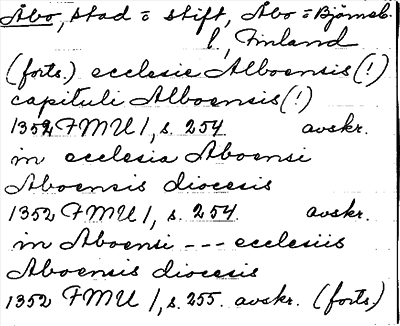 Åbo, stad o stift, Åbo o Björneb.
l, Finland
(forts.) ecclesie Alboensis (!)
capituli Alboensis (!)
1352 FMU 1, s. 254 avskr.
in ecclesia Aboensi
Aboensis diocesis
1352 FMU 1, s. 254 avskr.
in Aboensi --- ecclesiis
Aboensis diocesis
1352 FMU 1, s. 255. avskr. (forts.)